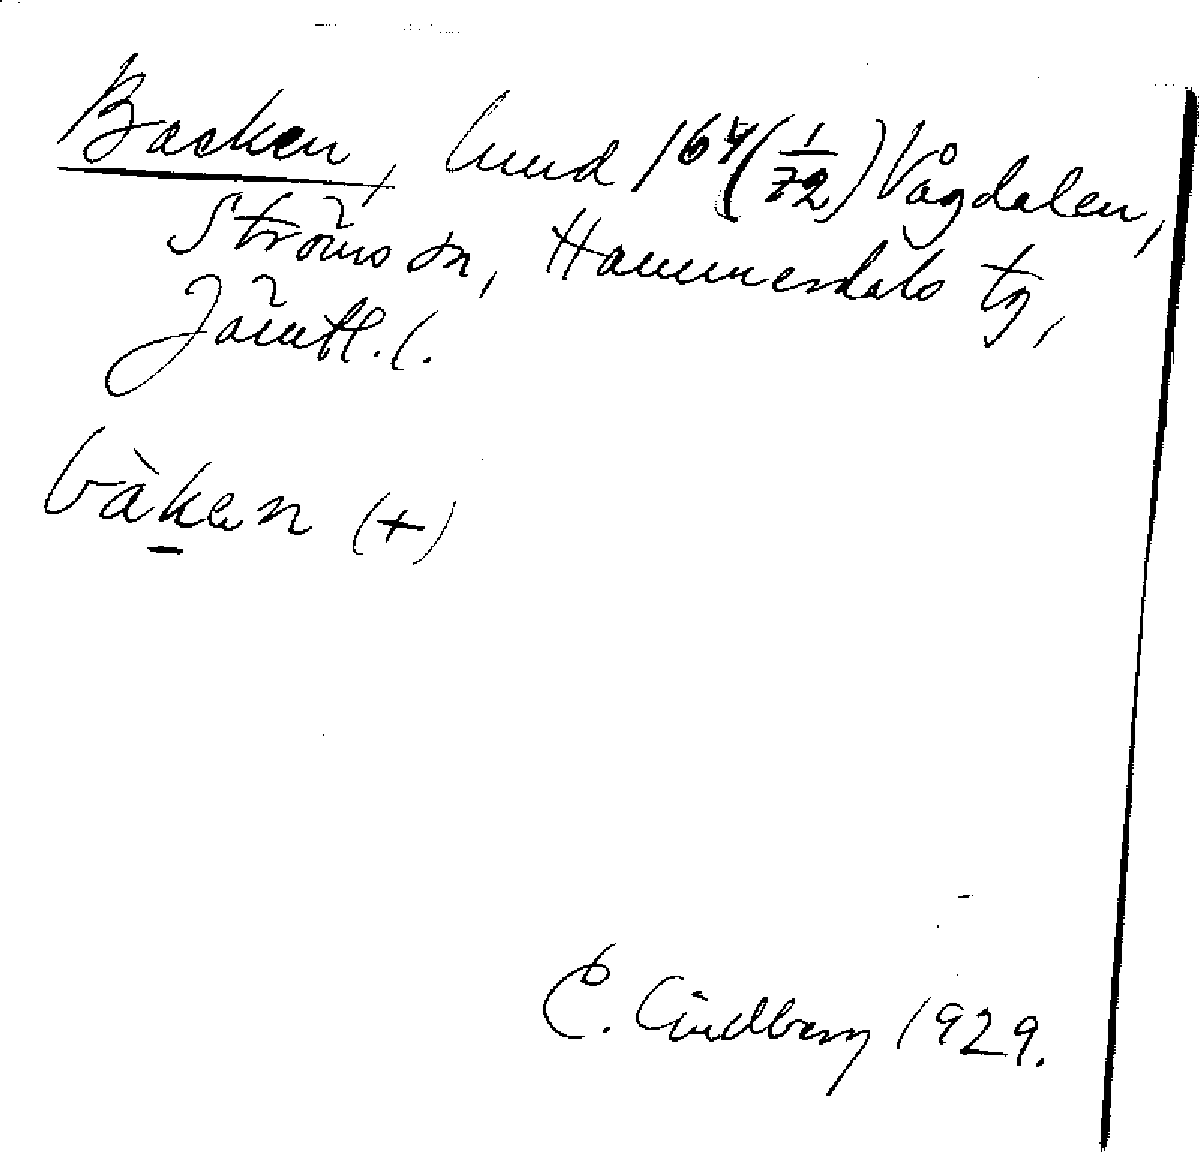 Backen, hmd 1⁶⁴(1/72) Vågdalen,
Ströms sn, Hammerdals tg,
Jämtl. l.
bàken (+)
E. Lindberg 1929.